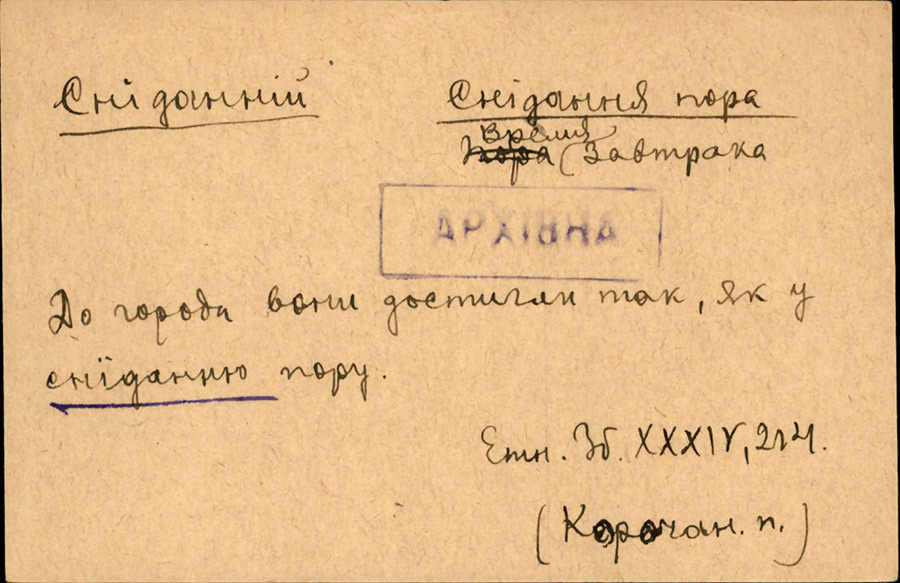 Сніданній
Снідання пора
Время
пора (Завтрака
АРХІВНА
До города вони достигли так, як у
сніданню пору.
Етн. Зб. XXXIV, 214.
(Корочан. п.)